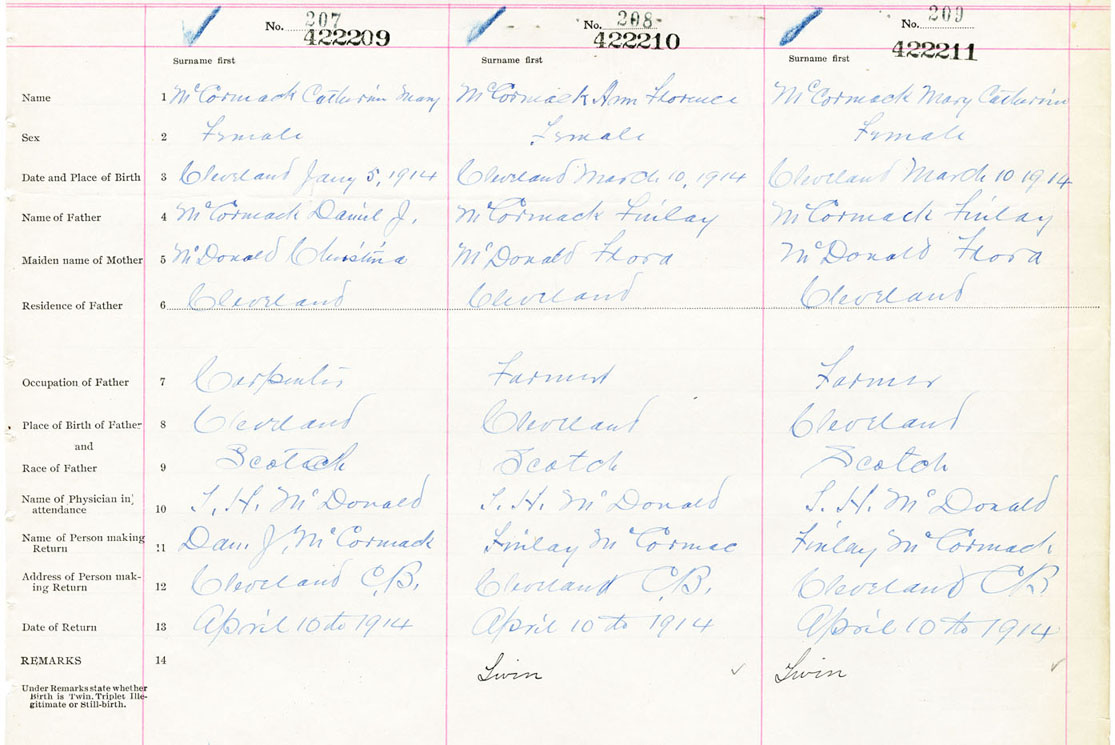 No. 207 No. 208 No. 209
422209 422210 422211
Surname first Surname first Surname first
Name 1 McCormack Catherin Mary McCormack Ann Florence McCormack Mary Catherin
Sex 2 Female Female Female
Date and Place of Birth 3 Cleveland Jany 5, 1914 Cleveland March 10, 1914 Cleveland March 10 1914
Name of Father 4 McCormack Daniel J. McCormack Finlay McCormack Finlay
Maiden name of Mother 5 McDonald Christina McDonald Flora McDonald Flora
Residence of Father 6 Cleveland Cleveland Cleveland
Occupation of Father 7 Carpenter Farmer Farmer
Place of Birth of Father 8 Cleveland Cleveland Cleveland
and
Race of Father 9 Scotch Scotch Scotch
Name of Physician in attendance 10 H. McDonald H. McDonald H. McDonald
Name of Person making Return 11 Dan. J. McCormack Finlay McCormac Finlay McCormack
Address of Person mak-
ing Return 12 Cleveland C.B. Cleveland C.B. Cleveland CB
Date of Return 13 April 10th 1914 April 10th 1914 April 10th 1914
REMARKS 14 Twin Twin
Under Remarks state whether
Birth is Twin, Triplet Ille-
gitimate or Still-birth.